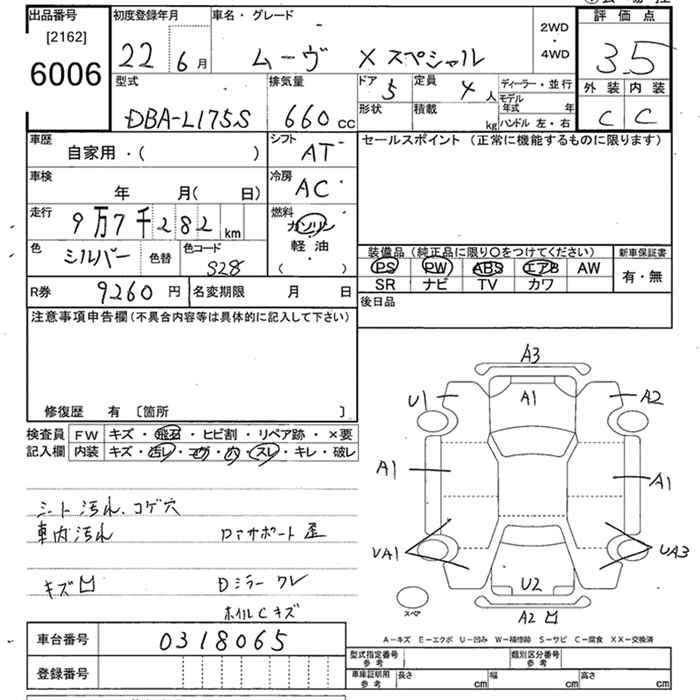 出品番号
[2162]
6006
初度登録年月
22 6月
車名・グレード
ムーヴ Xスペシャル
2WD
・
4WD
評価点
3.5
外装 内装
C C
型式
DBA-L175S
排気量
660cc
ドア 5
定員 4人
形状
積載 kg
ディーラー・並行
モデル年式 年
ハンドル 左・右
車歴
自家用・( )
シフト
AT
セールスポイント (正常に機能するものに限ります)
車検
年 月(日)
冷房
AC
走行
9万7千282km
燃料
ガソリン
軽油
・
( )
色 シルバー
色替
色コード
S28
装備品(純正品に限り〇をつけてください)
新車保証書
PS PW ABS エアB AW
有・無
SR ナビ TV カワ
R券 9260円
名変期限 月 日
後日品
注意事項申告欄(不具合内容等は具体的に記入して下さい)
修復歴 有 [箇所 ]
検査員 FW キズ・飛石・ヒビ割・リペア跡・×要
記入欄 内装 キズ・汚レ・コゲ・穴・スレ・キレ・破レ
シート汚れ、コゲ穴
車内汚れ
キズ凹
Dミラー ワレ
ホイルCキズ
A3
U1
A1
A2
A1
A1
UA1
UA3
U2
A2凹
スペア
A-キズ E-エクボ U-凹み W-補修跡 S-サビ C-腐食 XX-交換済
車台番号 0318065
登録番号
型式指定番号
参考
類別区分番号
参考
車庫証明用
参考
長さ cm
幅 cm
高さ cm